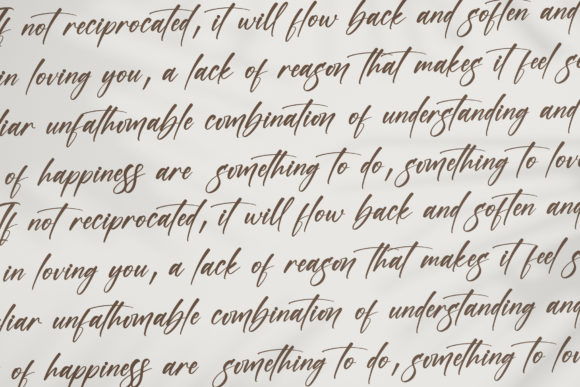 If not reciprocated, it will flow back and soften and
in loving you, a lack of reason that makes it feel
unfathomable combination of understanding and
of happiness are something to do, something to
If not reciprocated, it will flow back and soften and
in loving you, a lack of reason that makes it feel
unfathomable combination of understanding and
of happiness are something to do, something to